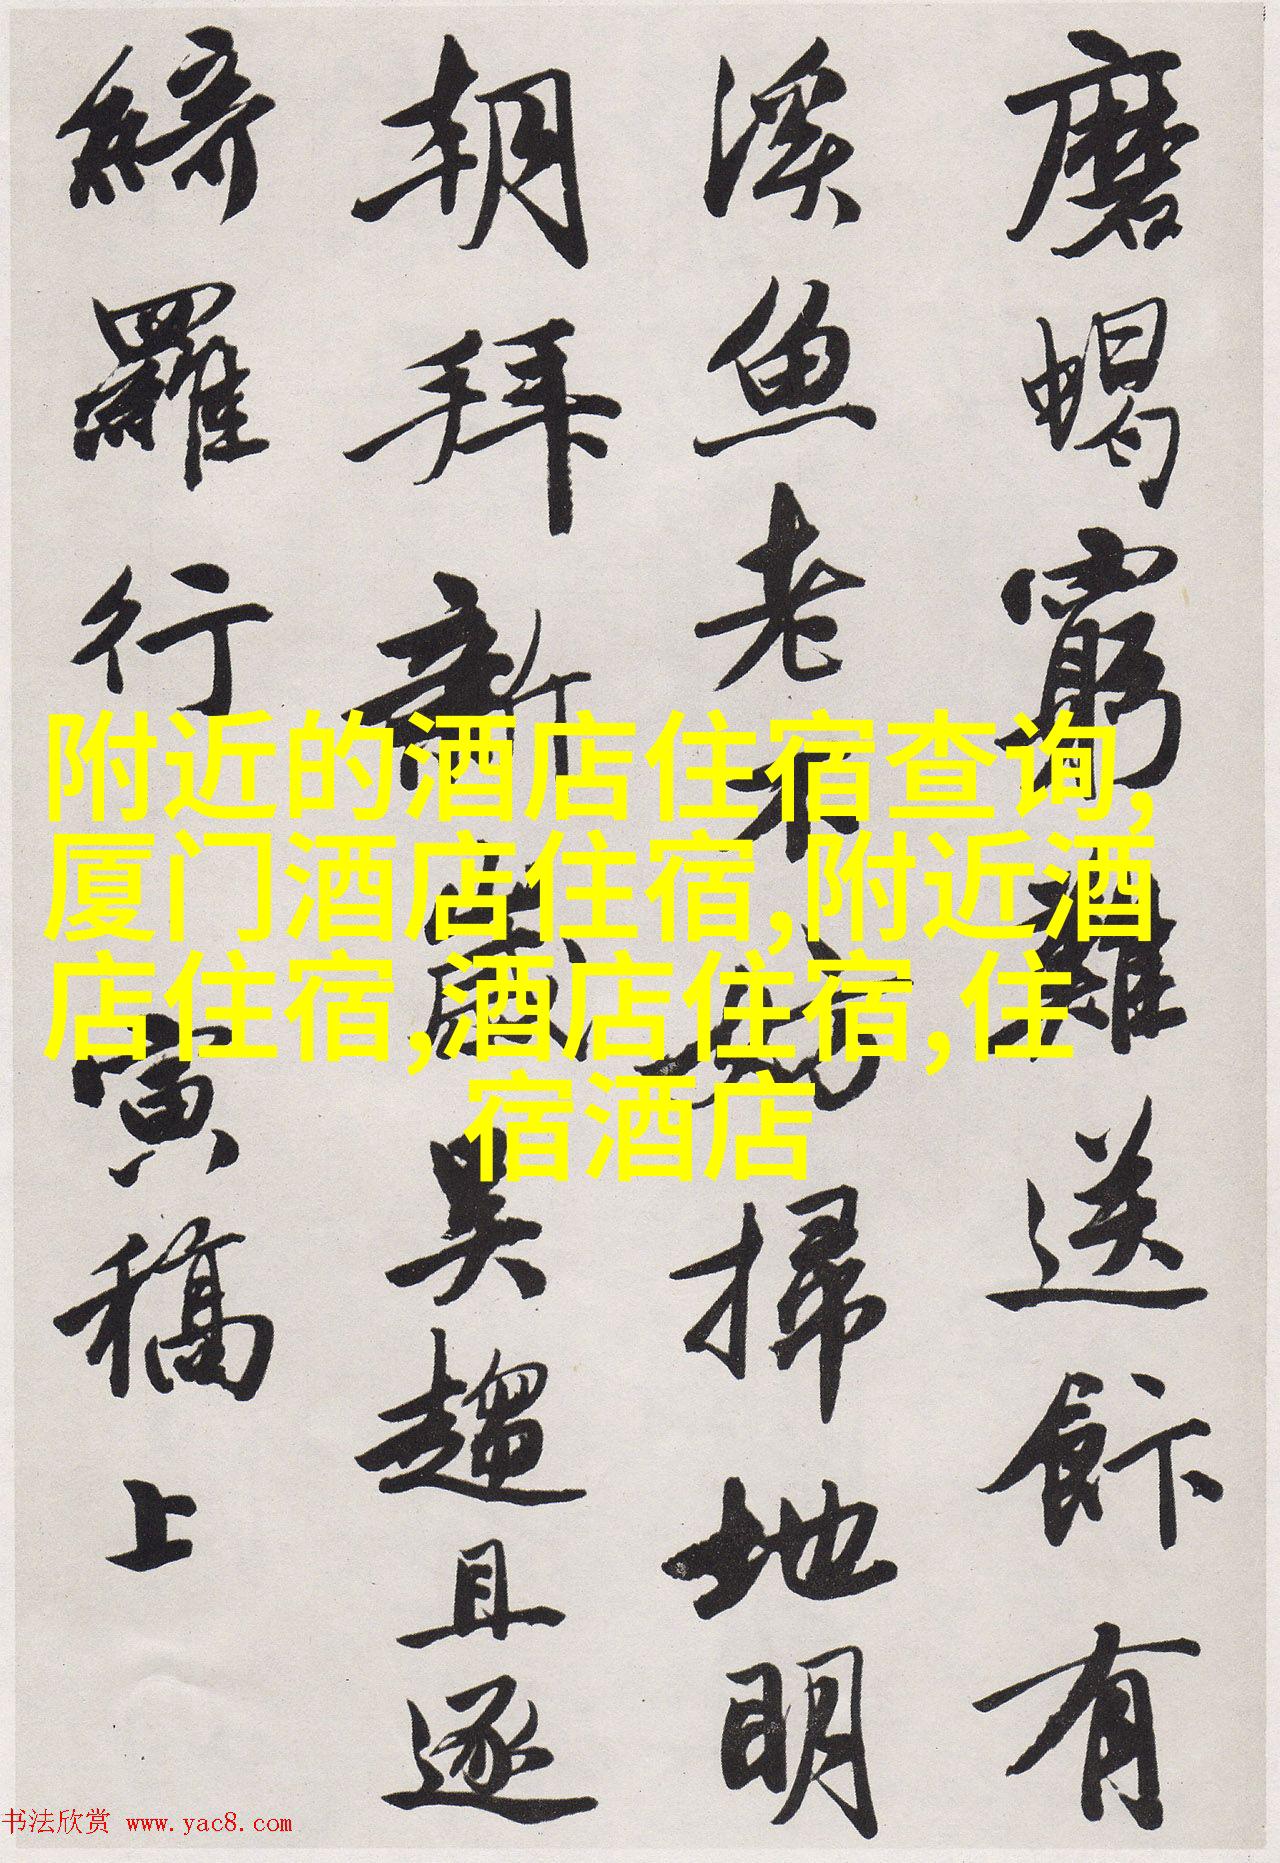 磨蝎窮難送飰有
溪魚老不妨掃地明
朝拜新歲吳趨且逐
綺羅行 寅稿上
附近的酒店住宿查询,
厦门酒店住宿,附近酒
店住宿,酒店住宿,住
宿酒店
书法欣赏 www.yac8.com